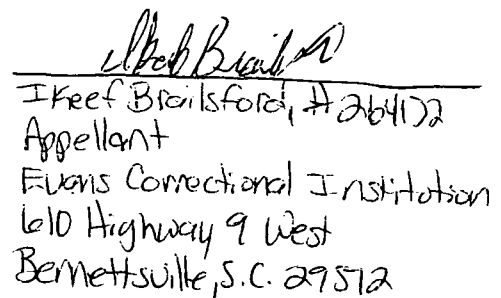 IKeef Brailsford, # 264172
Appellant
Evans Correctional Institution
610 Highway 9 West
Bennettsville, S.C. 29512